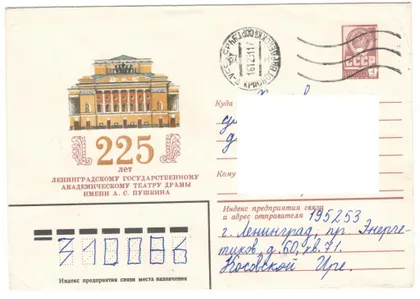 СССР
4
16 12 81 17
Куда
225
лет
ЛЕНИНГРАДСКОМУ ГОСУДАРСТВЕННОМУ
АКАДЕМИЧЕСКОМУ ТЕАТРУ ДРАМЫ
ИМЕНИ А. С. ПУШКИНА
Кому
Индекс предприятия связи
и адрес отправителя 195253
г. Ленинград, пр. Энерге-
тиков, д. 60, кв. 71.
Косовской Ире.
310086
Индекс предприятия связи места назначения